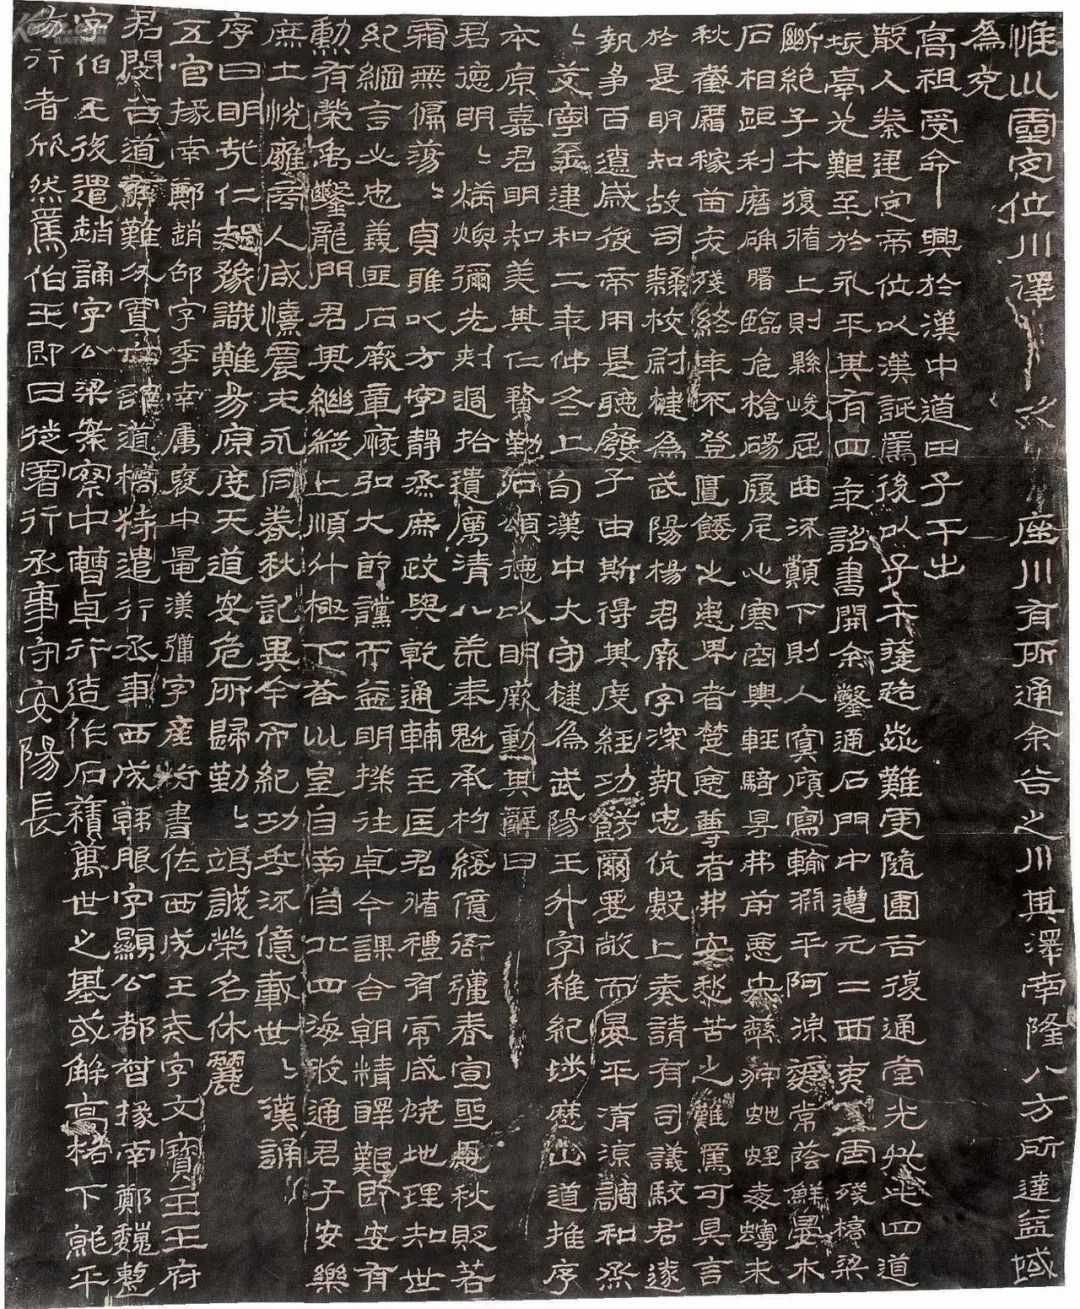 惟巛靈定位川澤股躬澤有所注川有所通余谷之川其澤南隆八方所達益域
為充
高祖受命興於漢中道由子午出
散入秦建定帝位以漢詆焉後以子午途路澀難更隨圍谷復通堂光凡此四道
垓鬲尤艱至於永平其有四年詔書開余鑿通石門中遭元二西夷虐殘橋梁
斷絕子午復循上則縣峻屈曲流顛下則入冥傾寫輸淵平阿淖泥常蔭鮮晏木
石相距利磨确磐臨危槍碭履尾心寒空輿輕騎遰弗前惡虫蔽狩蛇蛭毒蟃未
秋截霜稼苗夭殘終年不登匱餧之患卑者楚惡尊者弗安愁苦之難焉可具言
於是明知故司隸校尉楗為武陽楊君厥字深執忠伉數上奏請有司議駮君遂
執爭百遼咸從帝用是聽廢子由斯得其度經功飭爾要敞而晏平清涼調和烝
〻艾寧至建和二年仲冬上旬漢中大守楗為武陽王升字稚紀涉歷山道推序
本原嘉君明知美其仁賢勒石頌德以明厥勳其辭曰
君德明〻炳煥彌光刺過拾遺厲清八荒奉魁承杓綏億衙彊春宣聖恩秋貶若
霜無偏蕩〻貞雅以方寧靜烝庶政與乾通輔主匡君循禮有常咸曉地理知世
紀綱言必忠義匪石厥章恢弘大節讜而益明揆往卓今謀合朝情醳艱即安有
勳有榮禹鑿龍門君其繼縱上順斗極下答巛皇自南自北四海攸通君子安樂
庶士悅雍商人咸憘農夫永同春秋記異今而紀功垂流億載世〻歎誦
序曰明哉仁知豫識難易原度天道安危所歸勤〻竭誠榮名休麗
五官掾南鄭趙邵字季南屬褒中晁漢彊字產伯書佐西成王戒字文寶主王府
君閔谷道危難分置六部道橋特遣行丞事西成韓朖字顯公都督掾南鄭魏整
字伯玉後遣趙誦字公梁案察中曹卓行造作石積萬世之基或解高格下就平
易行者欣然焉伯玉即日徙署行丞事守安陽長